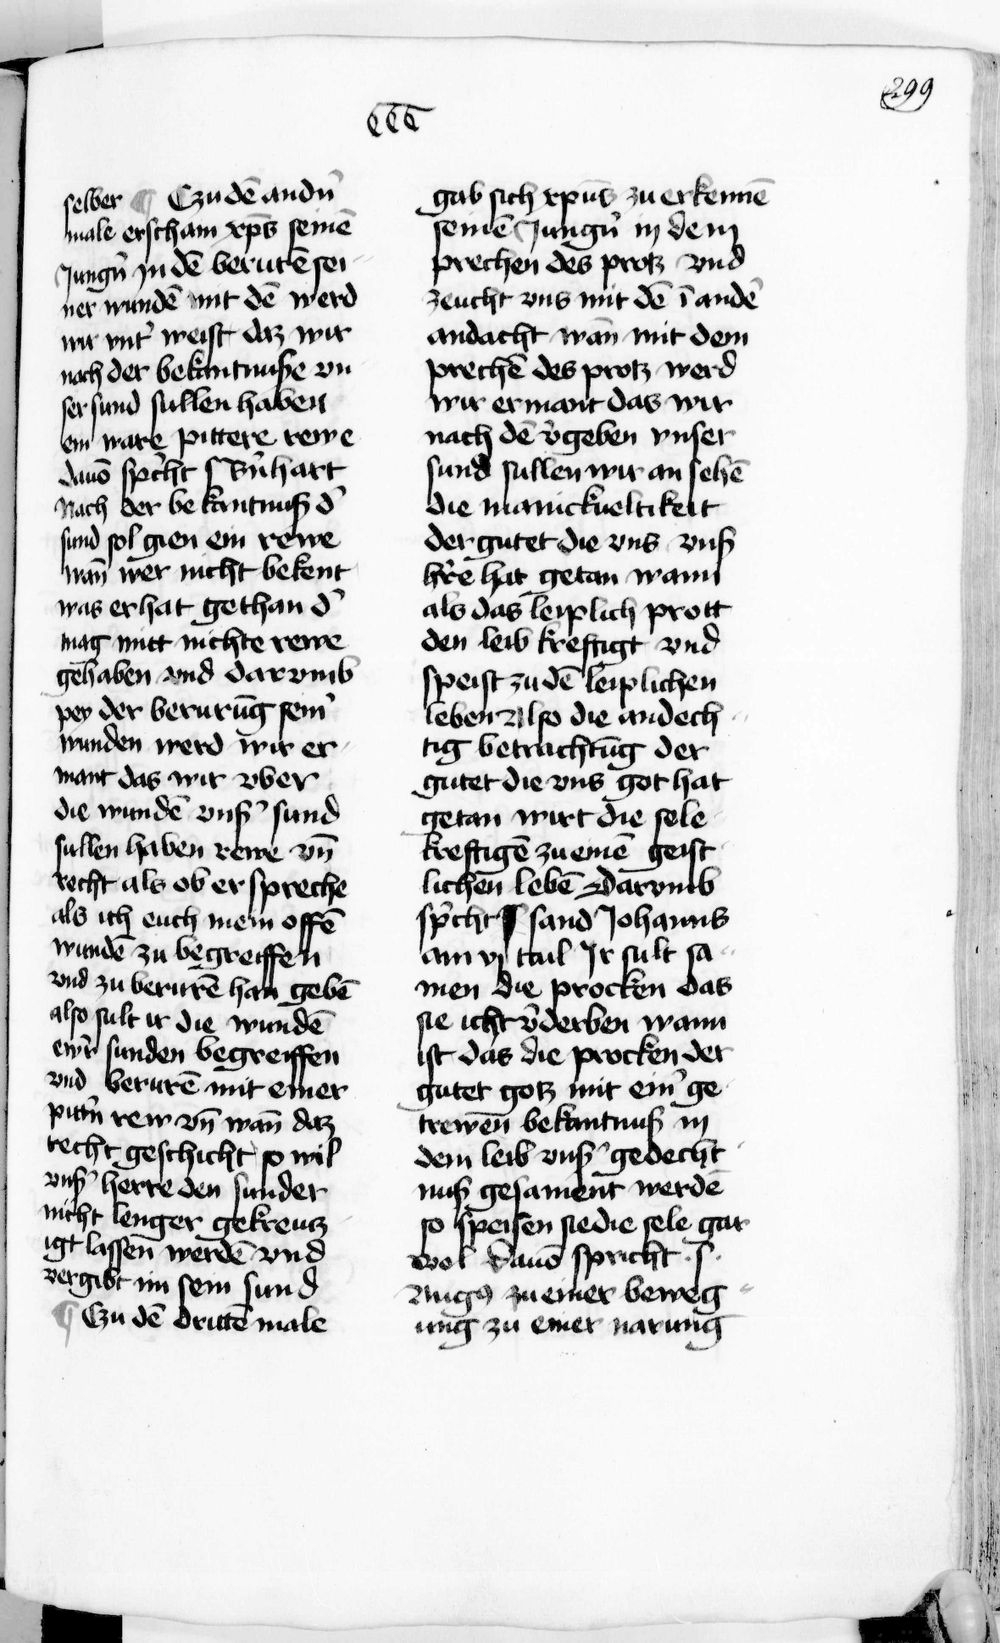 299
ccc
selber ¶ Czu dē andn̾
male erscham xp̄s seinē
Jungn̾ jn dē berurē sei
ner wundē mit dē werd
wir vnt̾ weist daz wir
nach der bekantnuße vn
ser sund sullen haben
ein ware pittere rewe
dauō sp̾cht s Bn̾hart
Nach der bekantnuß d̾
sund sol gien ein rewe
wan̄ wer nicht bekent
was er hat gethan d̾
mag mitt nichte rewe
gehaben vnd darvmb
pey der berurūg sein̾
wunden werd wir er
mant das wir vber
die wundē vnß̾ sund
sullen haben rewe vn̄
recht als ob er spreche
als ich euch mein offē
wundē zu begreiffen
vnd zu berurē han gebē
also sult ir die wundē
ewr̾ sunden begreiffen
vnd berurē mit einer
pittn̾ rew vn̄ wan̄ daz
recht geschicht so wil
vnß̾ herre den sunder
nicht lenger gekreutz
igt lassen werdē vnd
vergibt im sein sund
¶ Czu dē drittē male
gab sich xpūs zu erkennē
seinē Jungn̾ in dem
prechen des protz vnd
zeucht vns mit dē ī andē̾
andacht wān mit dem
prechē des protz werd
wir ermant das wir
nach dē v̾geben vnser
sund sullen wir an sehē
die manickueltikeit
der gutet die vns vnß
hr̾e hat getan wann
als das leiplich prott
den leib kreftigt vnd
speist zu dē leiplichen
leben Also die andech
tig betrachtūg der
gutet die vns got hat
getan wirt die sele
kreftigē zu einē geist
lichen lebē Darvmb
sp̾cht sand Johanns
am vj ttul Jr sult sa
men die procken das
sie icht v̾derben wann
ist das die procken der
gutet gotz mit ein̾ ge
trewen bekantnuß in
dem leib vnß̾ gedecht
nuß gesament werdē
so speisen sie die sele gar
wol Dauō spricht .s.
Augꝰ zu einer beweg
ung zu einer narung